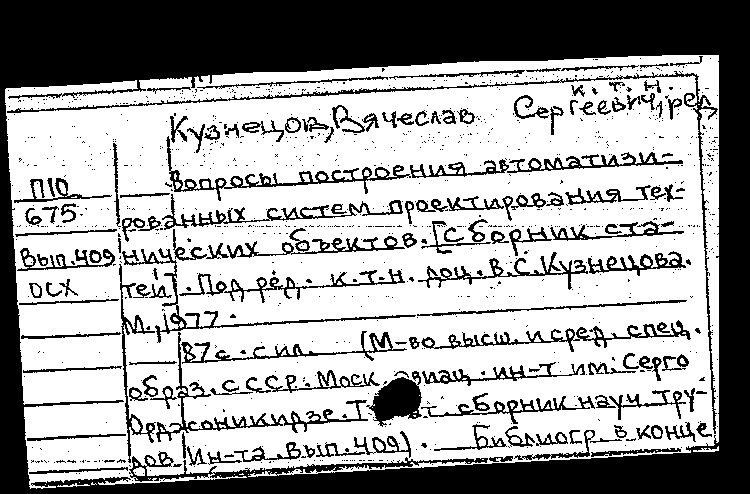 к.т.н.
Кузнецов, Вячеслав Сергеевич, ред
П10
675
Вып.409
ОСХ
Вопросы построения автоматизи-
рованных систем проектирования тех-
нических объектов. [Сборник ста-
тей]. Под ред. к.т.н. доц. В.С. Кузнецова.
М., 1977.
87 с. с ил. (М-во высш. и сред. спец.
образ. СССР. Моск. авиац. ин-т им. Серго
Орджоникидзе. сборник науч. тру-
дов Ин-та. Вып. 409). Библиогр. в конце